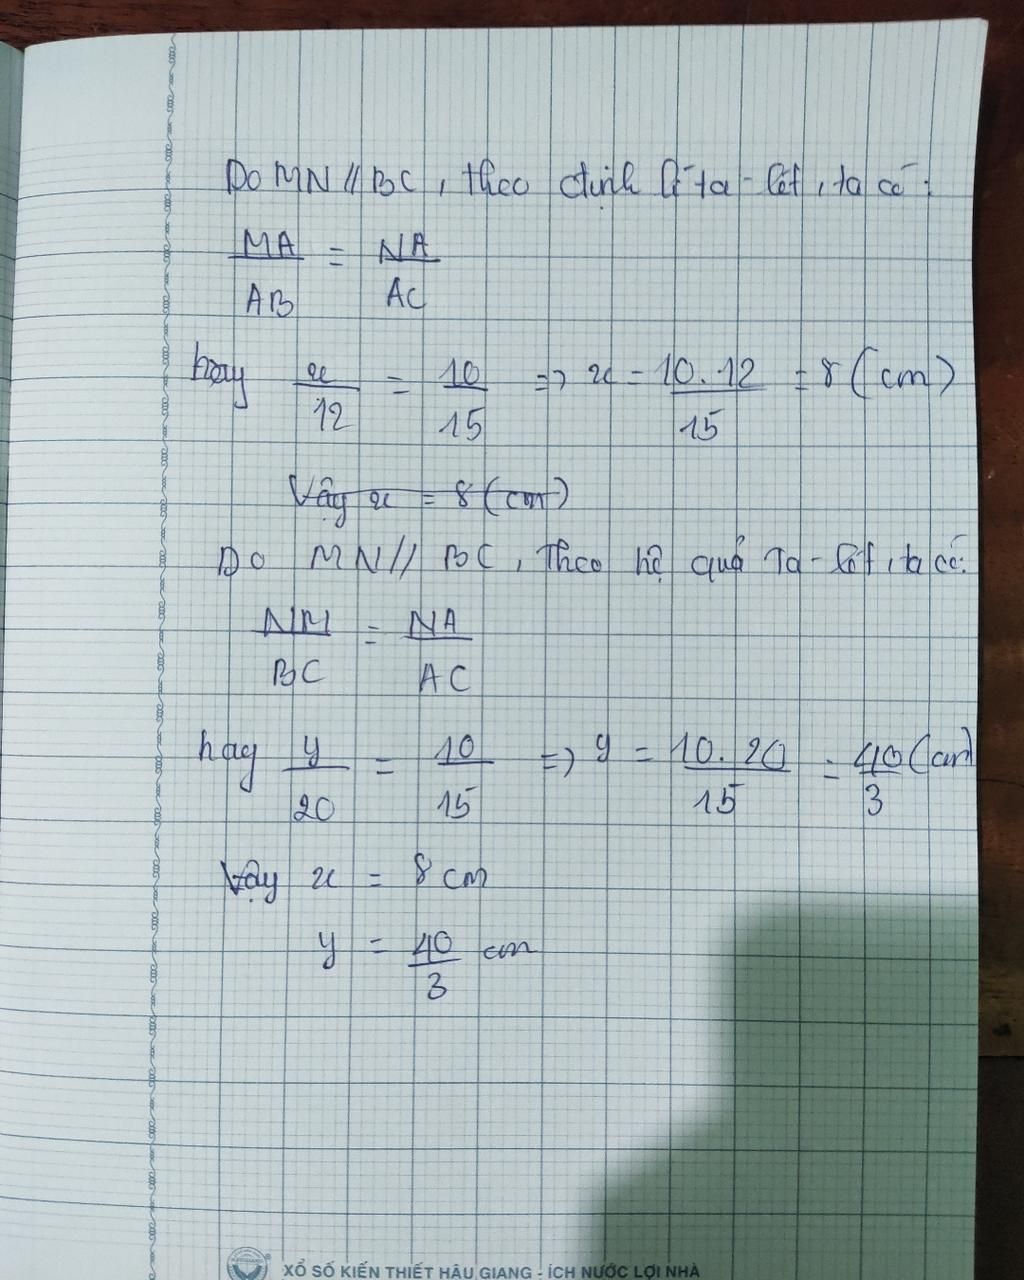 Do MN // BC, theo định lí ta-lét, ta có:
MA/AB = NA/AC
hay x/12 = 10/15 => x = 10.12/15 = 8 (cm)
Vậy x = 8 (cm)
Do MN // BC, theo hệ quả Ta-lét, ta có:
NM/BC = NA/AC
hay y/20 = 10/15 => y = 10.20/15 = 40/3 (cm)
Vậy x = 8 cm
y = 40/3 cm
XỔ SỐ KIẾN THIẾT HẬU GIANG - ÍCH NƯỚC LỢI NHÀ